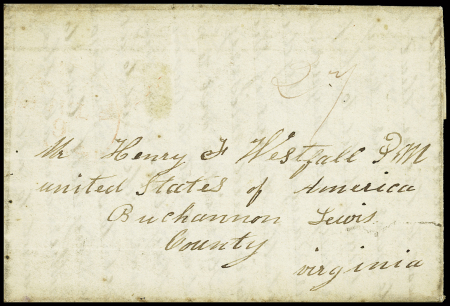 27
Mr Henry F Westfall PM
united States of America
Buchannon Lewis
County
virginia